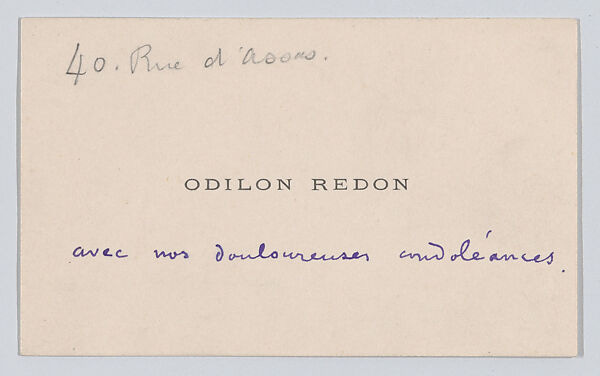 40. Rue d'Assas.
ODILON REDON
avec nos douloureuses condoléances.